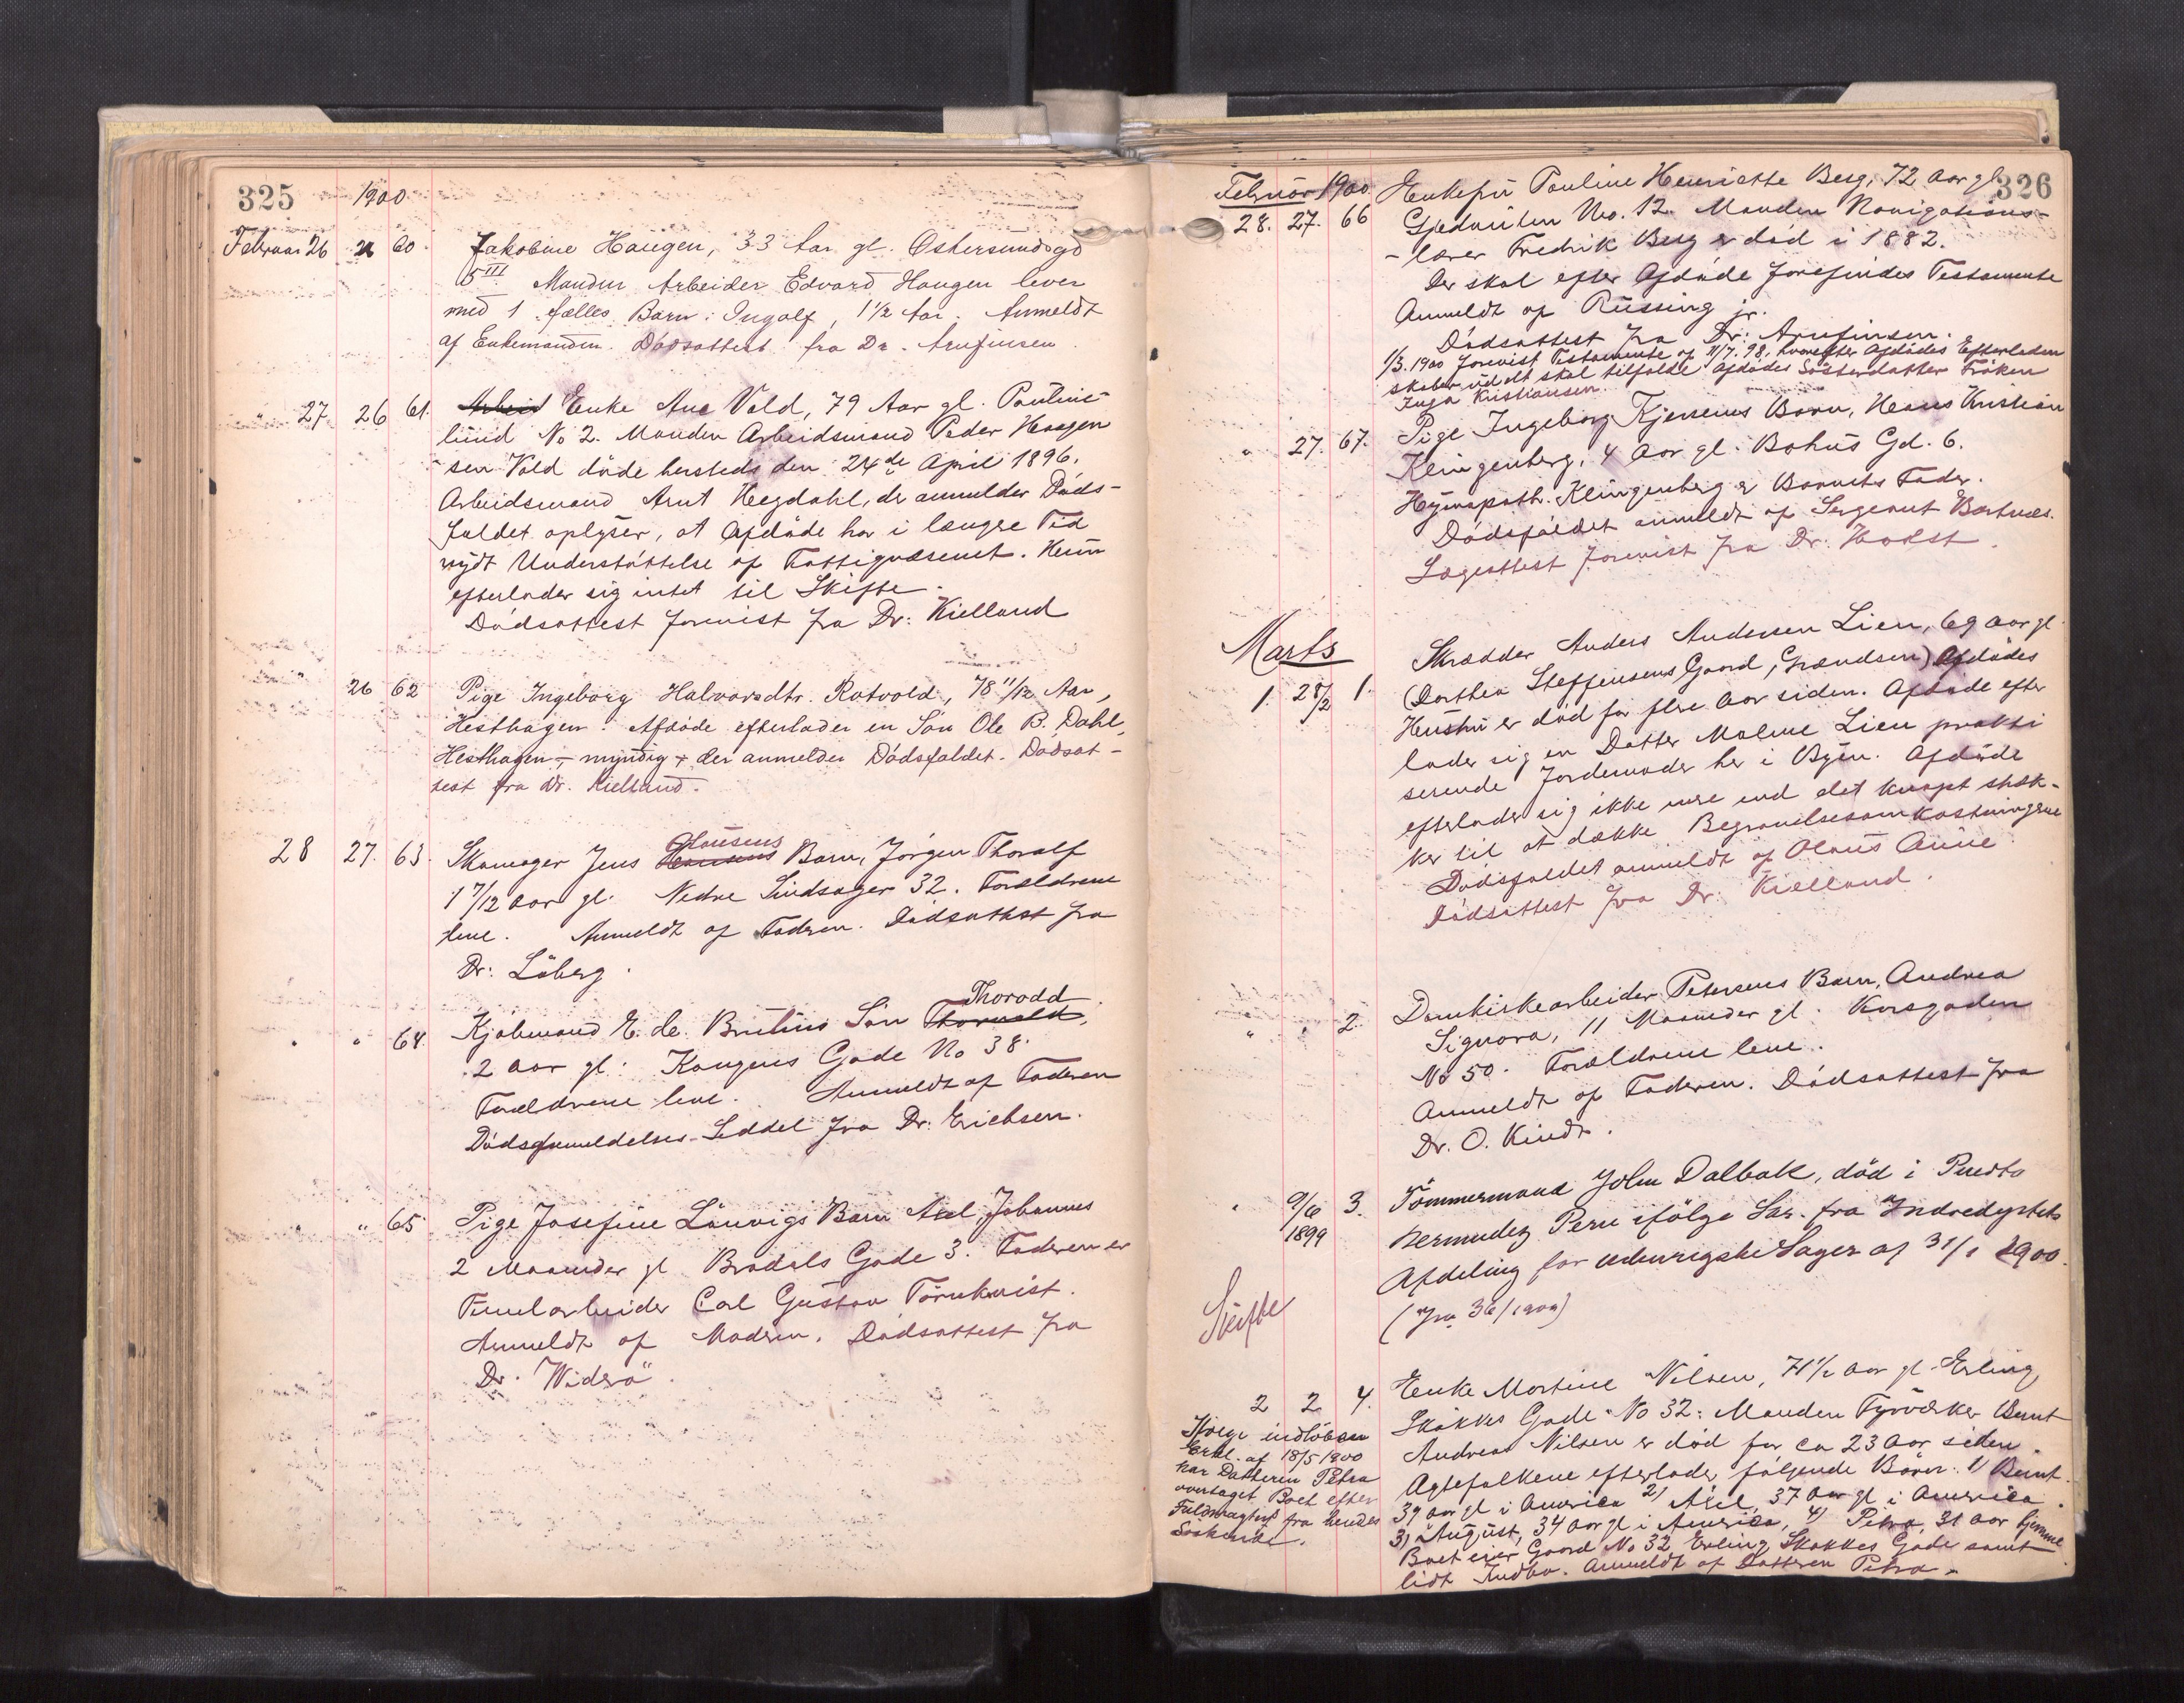 325 1900
Februar 26 21 60. Jakobine Haugen, 33 Aar gl. Østersundsgd
5 III. Manden Arbeider Edvard Haugen lever
med 1 fælles Barn: Ingolf, 1 1/2 Aar. Anmeldt
af Enkemanden. Dødsattest fra Dr. Arnfinsen.
" 27. 26 61. Arbeid Enke Ane Vold, 79 Aar gl. Paulins-
lund No 2. Manden Arbeidsmand Peder Haagen
sen Vold døde hersteds den 24de April 1896.
Arbeidsmand Arnt Hegdahl, der anmelder Døds-
faldet oplyser, at Afdøde har i længre Tid
nydt Understøttelse af Fattigvæsenet. Hun
efterlader sig intet til Skifte.
Dødsattest forevist fra Dr: Kielland
" 26 62 Pige Ingeborg Halvorsdtr. Rotvold, 78 11/12 Aar,
Hesthagen. Afdøde efterlader en Søn Ole B. Dahl,
Hesthagen – myndig – der anmelder Dødsfaldet. Dødsat-
test fra Dr. Kielland.
28 27. 63. Skomager Jens Clausens Barn, Jørgen Thoralf
1 7/12 Aar gl. Nedre Singsager 32. Forældrene
leve. Anmeldt af Faderen. Dødsattest fra
Dr: Løberg.
Thorodd
" " 64. Kjøbmand E. de Bruins Søn Thorvald,
2 Aar gl. Kongens Gade No 38.
Forældrene leve. Anmeldt af Faderen
Dødsanmeldelses-Seddel fra Dr: Erichsen.
" " 65 Pige Josefine Lønvigs Barn Axel Johannes
2 Maaneder gl Brodals Gade 3. Faderen er
Arbeider Carl Gustav Törnkvist.
Anmeldt af Moderen. Dødsattest fra
Dr. Widerø.
326
Februar 1900. Enkefru Pauline Henriette Berg, 72 Aar gl
28. 27. 66 Gjedveiten No. 12. Manden Navigations-
-lærer Fredrik Berg er død i 1882.
Der skal efter Afdøde forefindes Testamente
Anmeldt af Rüssing jr.
Dødsattest fra Dr: Arnfinsen.
1/3. 1900 forevist Testamente af 11/7. 98, hvorefter Afdødes Efterladen
skaber udelt skal tilfalde Afdødes Søsterdatter Frøken
Inga Kristiansen.
" 27. 67. Pige Ingeborg Kjersems Barn, Hans Kristian
Klingenberg, 4 Aar gl. Bakus Gd. 6.
Klingenberg er Barnets Fader.
Dødsfaldet anmeldt af Sergeant Bartnes.
Lægeattest forevist fra Dr. Holst.
Marts
1. 28/2 1. Skrædder Anders Andersen Lien, 69 Aar gl
(Dorthea Steffensens Gaard, Grændsen) Afdødes
Hustru er død for flere Aar siden. Afdøde efter
lader sig en Datter Malene Lien prakti
serende Jordemoder her i Byen. Afdøde
efterlader sig ikke mere end det knapt stræk-
ker til at dække Begravelsesomkostningerne
Dødsfaldet anmeldt af Olaus Aune.
Dødsattest fra Dr. Kielland.
" " 2. Domkirkearbeider Petersens Barn, Andrea
Signora, 11 Maaneder gl. Korsgaden
No 50. Forældrene leve.
Anmeldt af Faderen. Dødsattest fra
Dr. O. Kindt.
" 9/6 1899 3. Tømmermand John Dalbak, død i Puerto
Bermudez Peru ifølge Skr. fra Indredeptets
Afdeling for udenrigske Sager af 31/1 1900.
(Jrn 36/1900)
Skifte
2 2 4. Enke Martine Nilsen, 71 1/2 Aar gl. Erling
Skakkes Gade No 32. Manden Fyrvæker Bernt
Andreas Nilsen er død for ca 23 Aar siden.
Ægtefolkene efterlader følgende Børn: 1/ Bernt.
39 Aar gl i America 2/ Axel, 37 Aar gl i America.
3/ August, 34 Aar gl i America, 4/ Petra, 31 Aar hjemme
Boet eier Gaard No 32 Erling Skakkes Gade samt
lidt Indbo. Anmeldt af Datteren Petra.
Ifølge indløben
Erkl. af 18/5 1900
har Datteren Petra
overtaget Boet efter
Fuldmagter fra hendes
Søskende.